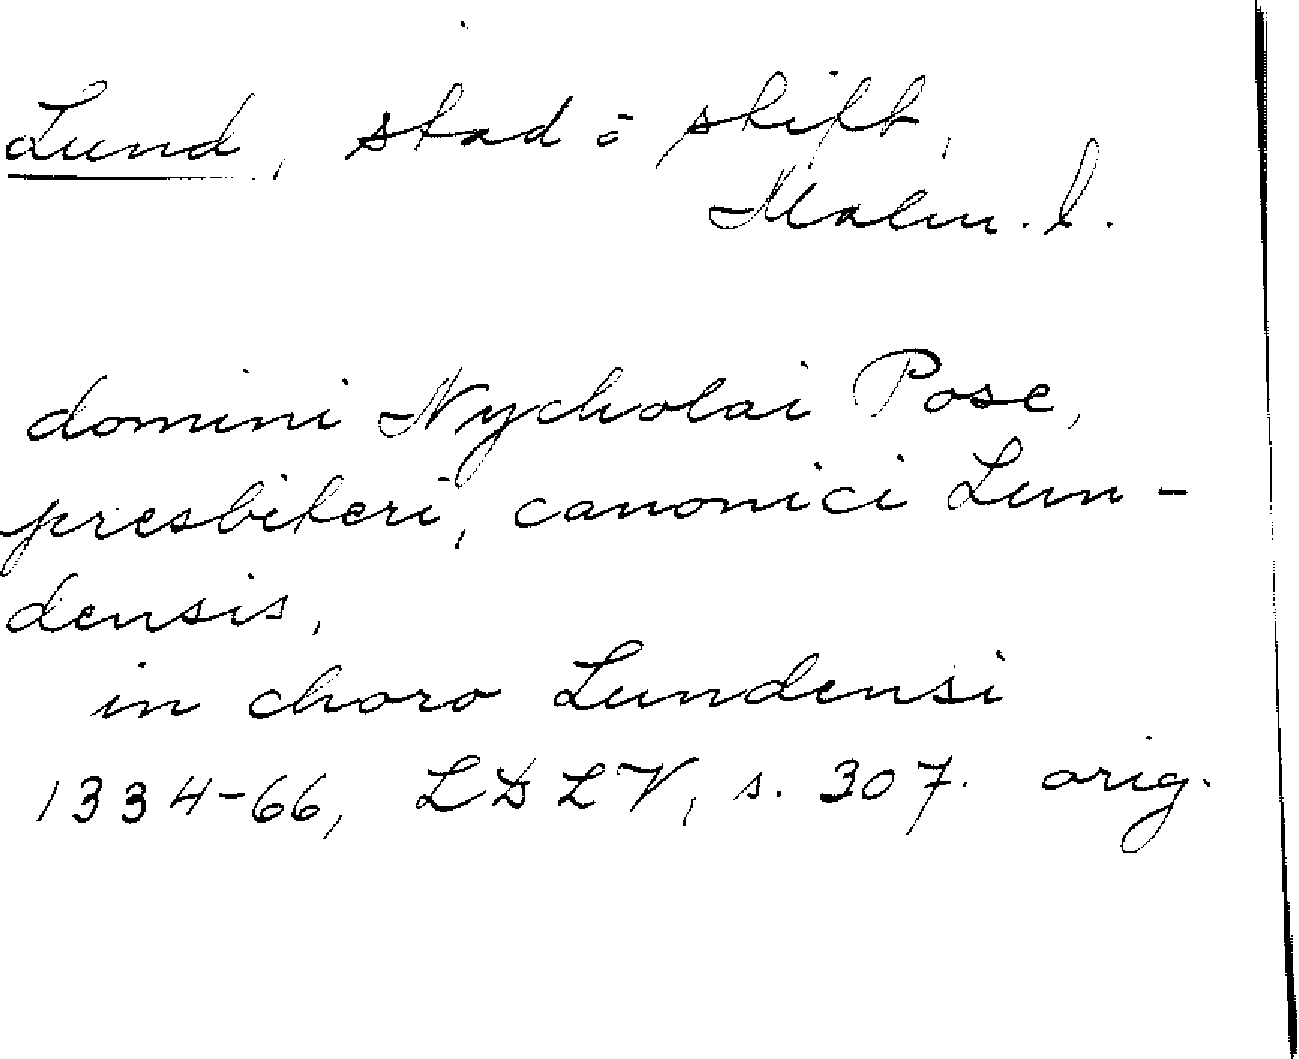 Lund, stad o skift,
Malm. l.
domini Nycholai Pose,
presbiteri, canonici Lun-
densis,
in choro Lundensi
1334-66, LDLV, s. 307. orig.